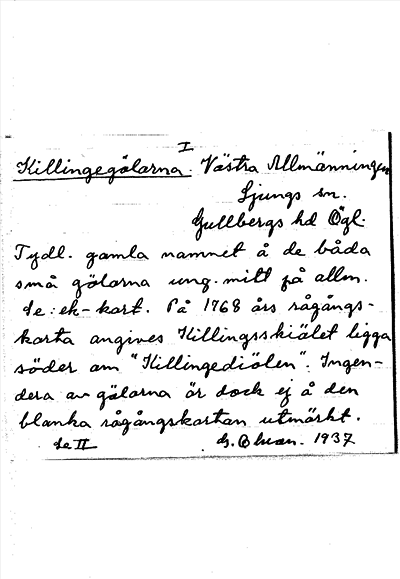 I
Killingegölarna. Västra Allmänningen
Ljungs sn.
Gullbergs hd Ögl.
Tydl. gamla namnet å de båda
små gölarna ung. mitt på allm.
Se: ek-kart. På 1768 års rågångs-
karta angives Killingsskiälet ligga
söder om "Killingediölen". Ingen-
dera av gölarna är dock ej å den
blanka rågångskartan utmärkt.
Se II
1937